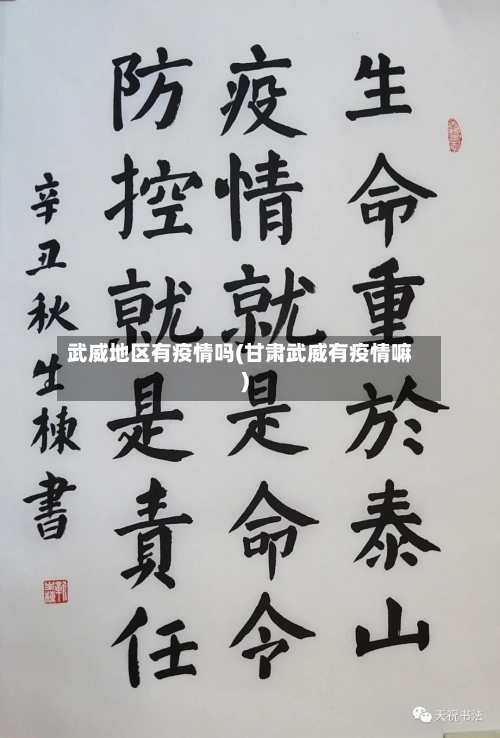 生命重於泰山
疫情就是命令
防控就是責任
辛丑秋生棟書
武威地区有疫情吗(甘肃武威有疫情嘛
)
天祝书法